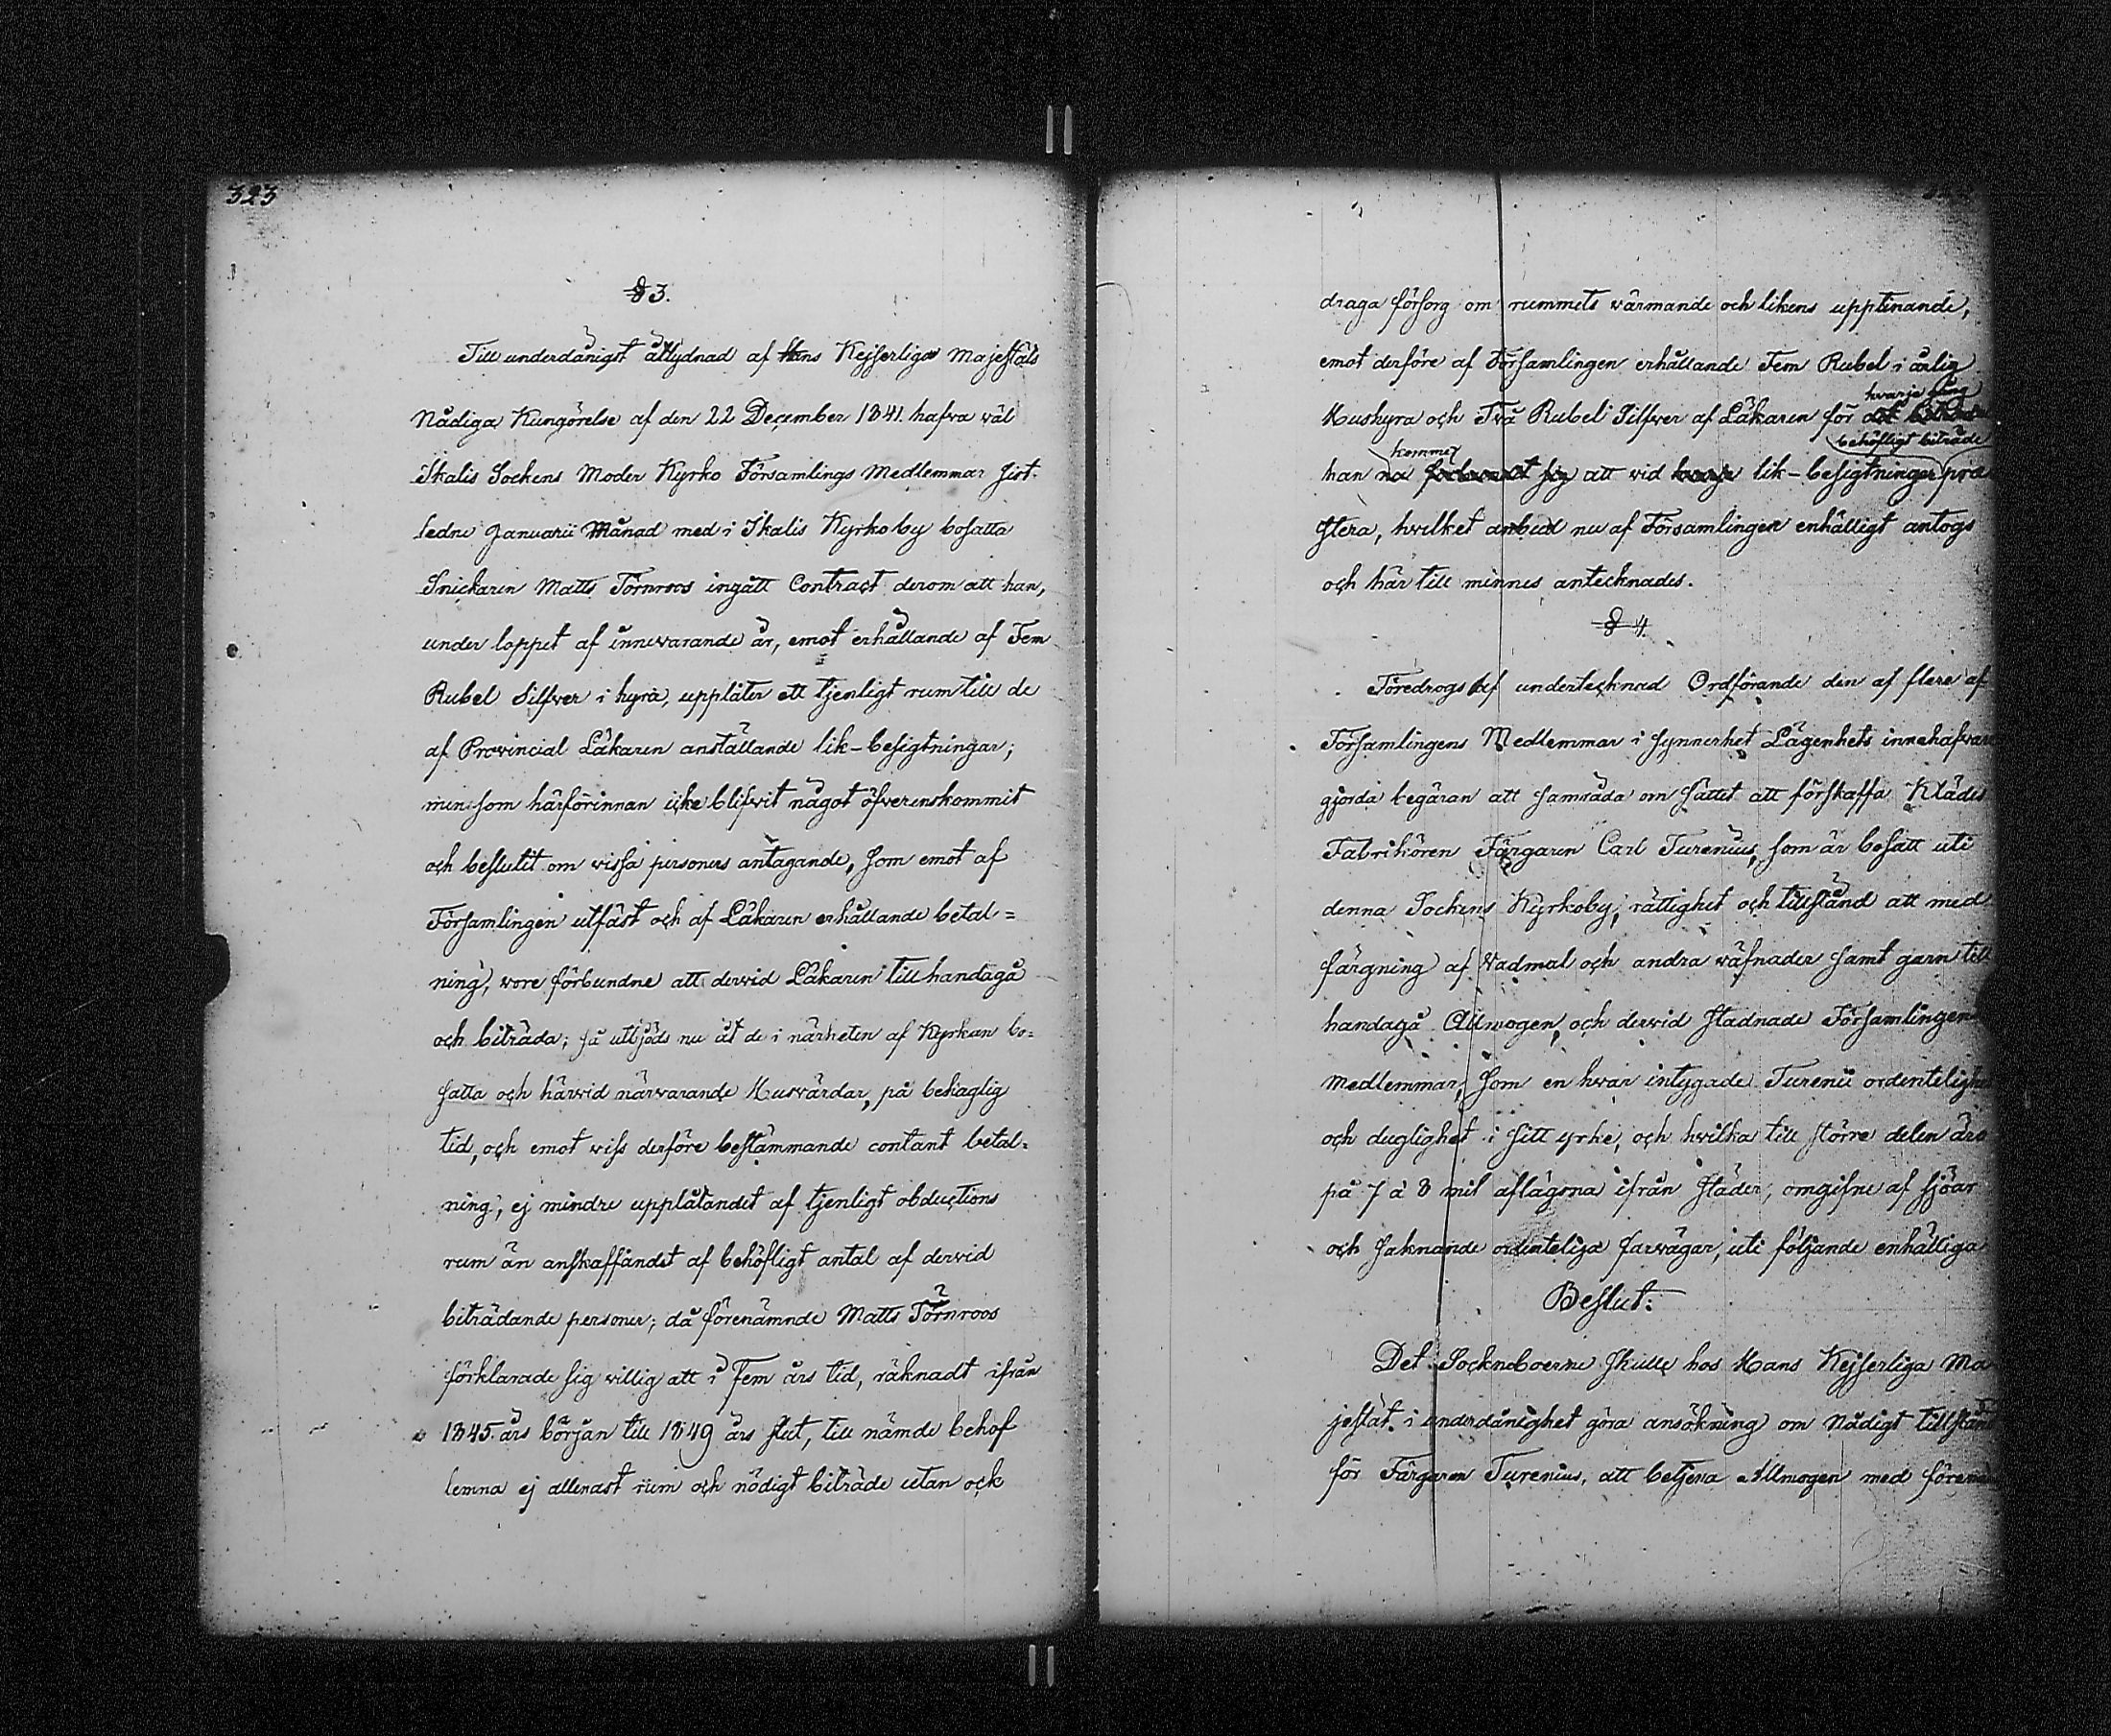 323
§ 3.
Till underdånigst åtlydnad af Hans Kejserliga Majestäts
Nådiga Kungörelse af den 22 December 1841. hafva väl
Ikalis Sockens Moder Kyrko Församlings Medlemmar sist-
ledne Januarii Månad med i Ikalis Kyrkoby bosatta
Snickaren Matts Törnroos ingått Contract derom att han,
under loppet af innevarande år, emot erhållande af Fem
Rubel Silfver i hyra, upplåter ett tjenligt rum till de
af Provincial Läkaren anställande lik-besigtningar;
men som härförinnan icke blifvit något öfverenskommit
och beslutit om vissa personers antagande, som emot af
Församlingen utfäst och af Läkaren erhållande betal=
ning, vore förbundne att dervid Läkaren tillhandagå
och biträda; så utbjöds nu åt de i närheten af Kyrkan bo=
satta och härvid närvarande Husvärdar, på behaglig
tid, och emot viss derföre bestämmande contant betal=
ning, ej mindre upplåtandet af tjenligt obductions
rum än anskaffandet af behöfligt antal af dervid
biträdande personer; då förenämnde Matts Törnroos
förklarade sig villig att i Fem års tid, räknadt ifrån
1845. års början till 1849 års slut, till nämde behof
lemna ej allenast rum och nödigt biträde utan ock
draga försorg om rummets värmande och likens upptinande,
emot derföre af Församlingen erhållande Fem Rubel i årlig
hvarje
Hushyra och Två Rubel Silfver af Läkaren för det
kommer behöfligt biträde
han att vid hvarje lik-besigtningar præ
stera, hvilket anbud nu af Församlingen enhälligt antogs
och här till minnes antecknades.
§ 4.
Föredrogs af undertecknad Ordförande den af flere af
Församlingens Medlemmar i synnerhet Lägenhets innehafvare
gjorda begäran att samråda om sättet att förskaffa Klädes
Fabrikören Färgaren Carl Turenius, som är bosatt uti
denna Sockens Kyrkoby, rättighet och tillstånd att med
färgning af Vadmal och andra väfnader samt garn till
handagå Allmogen, och dervid stadnade Församlingens
Medlemmar, som en hvar intygade Turenii ordentelighet
och duglighet i sitt yrke, och hvilka till större delen äro
på 7 à 8 mil aflägsna ifrån städer, omgifne af sjöar
och saknande ordenteliga farvägar, uti följande enhälliga
Beslut:
Det Sockneboerne skulle hos Hans Kejserliga Ma
jestät i underdånighet göra ansökning om Nådigt tillstånd
för Färgaren Turenius, att betjena Allmogen med